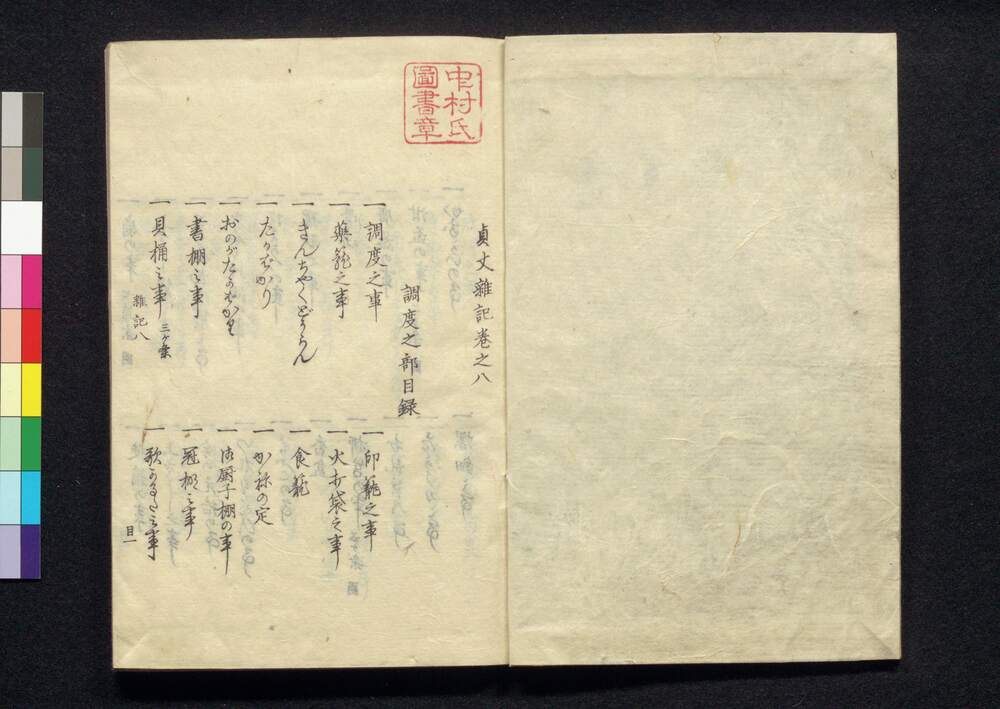 中村氏
圖書章
貞丈雜記巻之八
調度之部目録
一 調度之事
一 印籠之事
一 藥籠之事
一 火打袋之事
一 きんちやくどうらん
一 食籠
一 たかはかり
一 かねの定
一 おのがたけはかり
一 御厨子棚の事
一 書棚之事
一 冠棚之事
一 貝桶之事 三ケ條
一 歌かるた之事
雜記八
目一